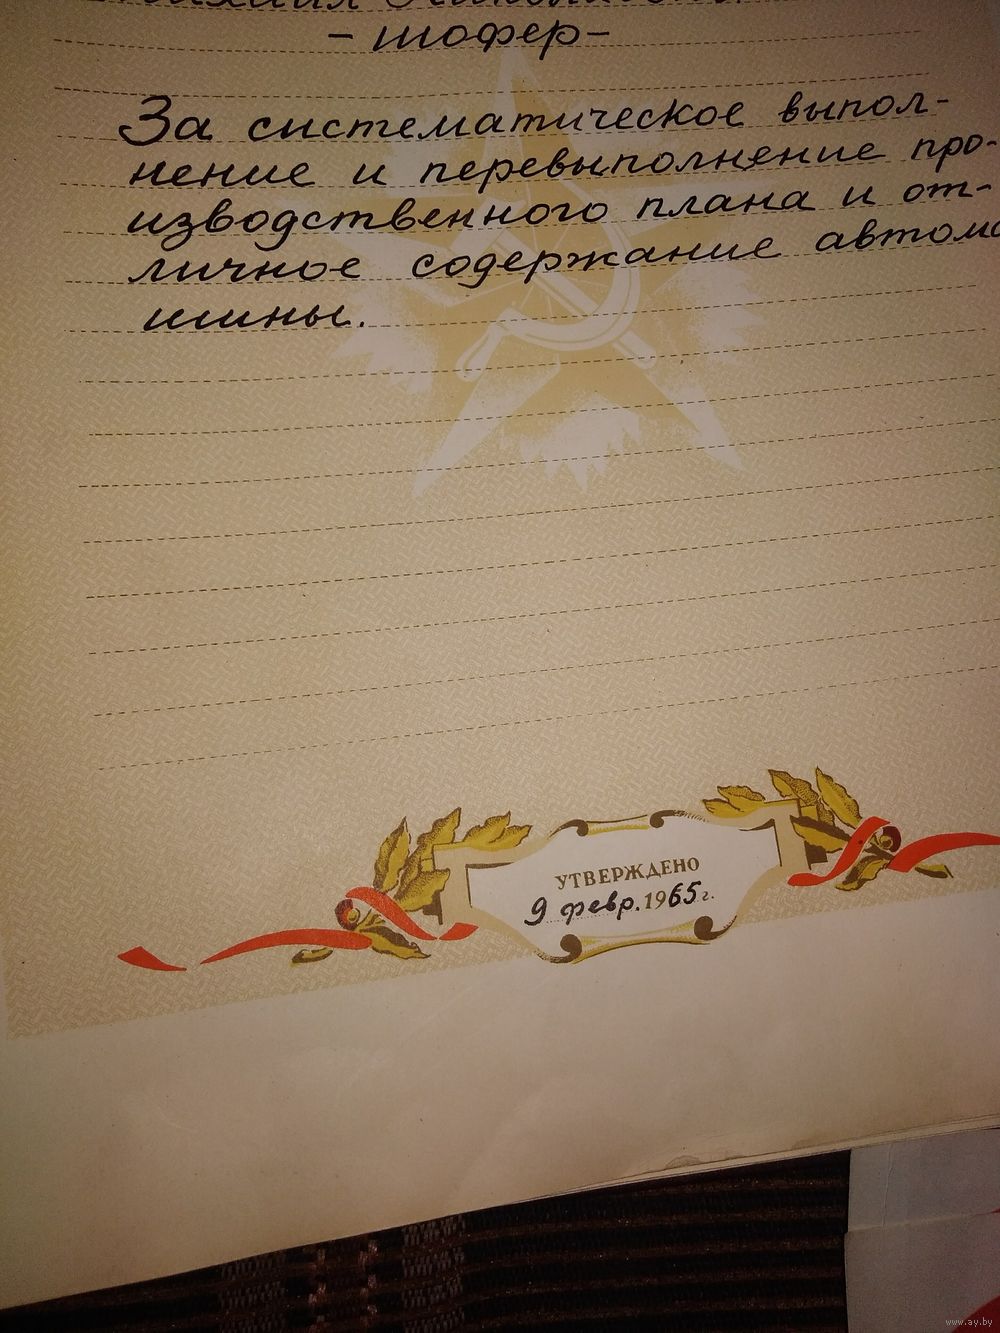 - шофер-
За систематическое выпол-
нение и перевыполнение про-
изводственного плана и от-
личное содержание автома
шины.
УТВЕРЖДЕНО
9 февр. 1965 г.
www.ay.by